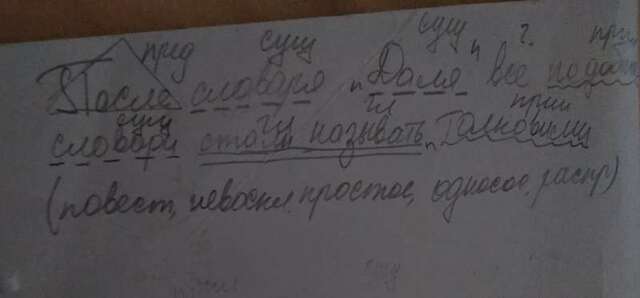 пред сущ сущ ч. прил
После словаря „Даля" все подоб
сущ гл гл прил
словари стали называть „Толковыми
(повест, невоскл, простое, односос, распр)